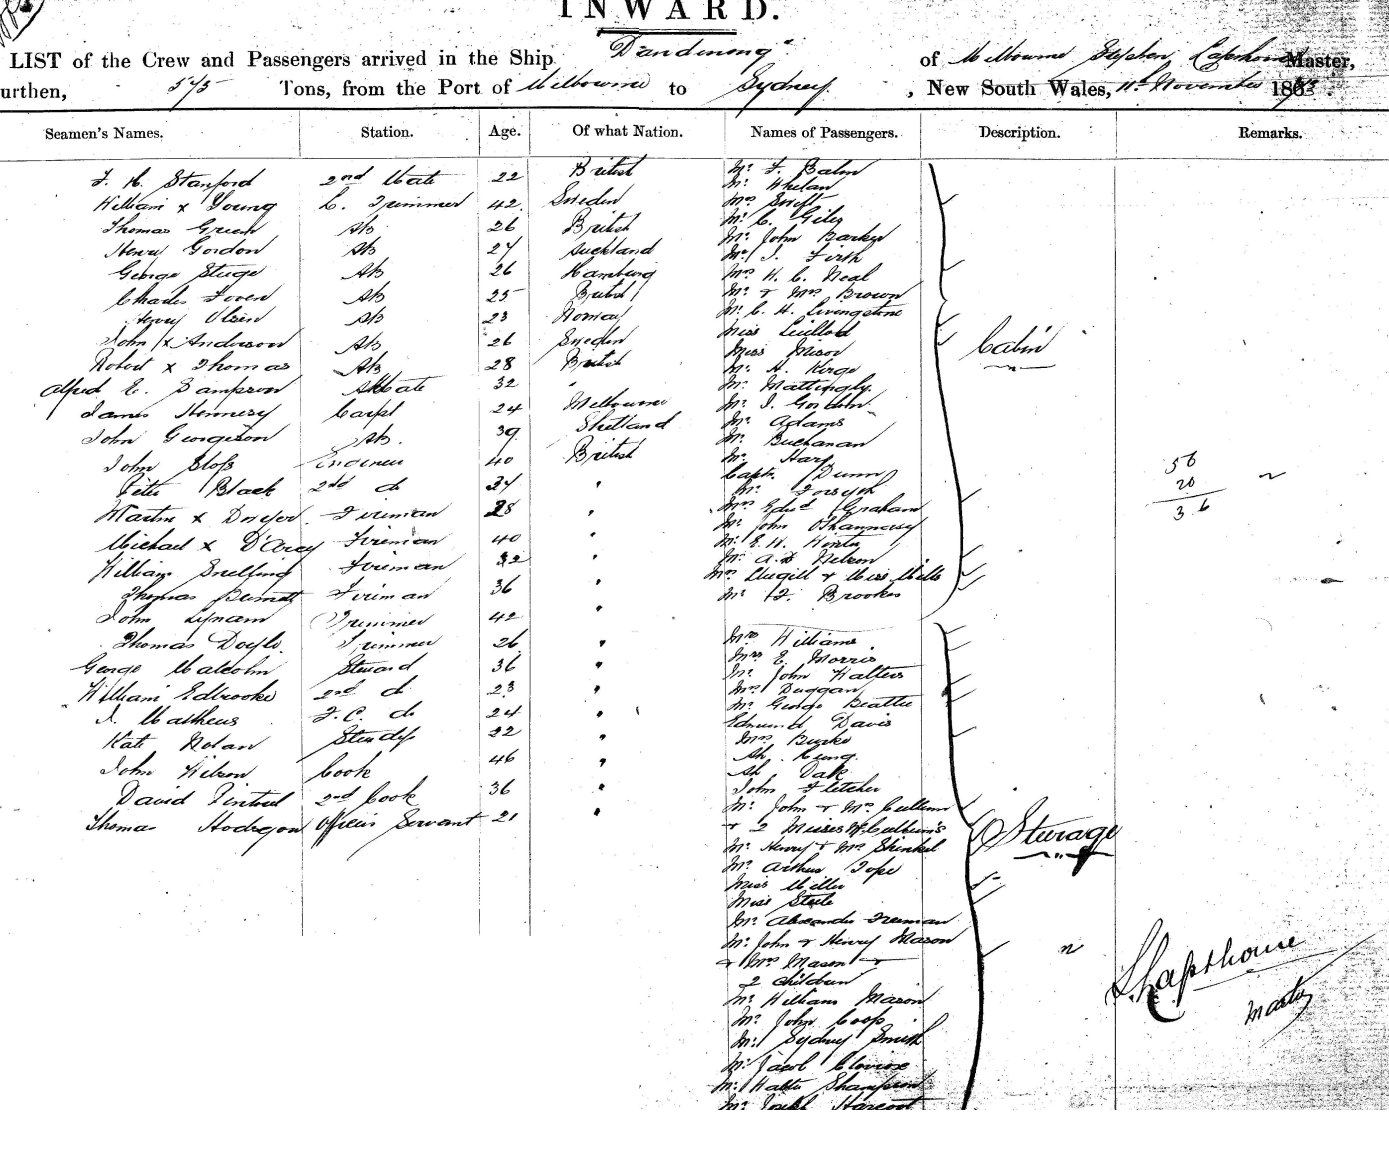 INWARD.
LIST of the Crew and Passengers arrived in the Ship "Dandenong" of Melbourne Stephen Lapthorne Master,
urthen, 575 Tons, from the Port of Melbourne to Sydney, New South Wales, 11th November 186
Seamen's Names. Station. Age. Of what Nation. Names of Passengers. Description. Remarks.
F. H. Stanford 2nd Mate 22 British
William x Young L. Trimmer 42 Sweden
Thomas Green Ab 26 British
Henry Gordon Ab 24 Auckland
George Ab 26 Hamburg
Charles Ab 25 British
Henry Olsen Ab 23 Norway
John x Anderson Ab 26 Sweden
Robert x Thomas Ab 28 British
Alfred E. Sampson Mate 32 "
James Hennesy Carpt 24 Melbourne
John Georgeson Ab. 39 Shetland
John Engineer 40 British
Peter Black 2nd do "
Martin x Dwyer Fireman 28 "
Michael x D'Arcy Fireman 40 "
William Snelling Fireman 32 "
Thomas Fireman 36 "
John Lynam Trimmer 42 "
Thomas Doyle Trimmer 26 "
George Malcolm Steward 36 "
William Edbrooke 2nd do 23 "
J. Mathews F.C. do 24 "
Kate Nolan Stewdss 22 "
John Wilson Cook 46 "
David 2nd Cook 36 "
Thomas Hodgson Officers Servant 21 "
Mr. F.
Mr. Whelan
Mrs Swift
Mr. C. Giles
Mr. John Barker
Mr. J. Firth
Mrs H. C. Neal
Mr. & Mrs Brown
Mr. C. H. Livingstone
Miss
Miss
Mr. H.
Mr. Mattingly
Mr. J. Gordon
Mr. Adams
Mr. Buchanan
Mr. Hart
Captn. Dunn
Mr. Forsyth
Mrs Edwd Graham
Mr. John
Mr. E. H.
Mr. A. Nelson
Mrs Cugill & Miss Mills
Mr. F. Brookes
Cabin
Mrs Williams
Mrs E. Morris
Mr. John Walters
Mrs Duggan
Mr. George Beattie
Edmund Davis
Mrs Burke
Ah Kung
Ah Dak
John Fletcher
Mr. John & Mrs
& 2 Misses
Mr. Henry & Mrs
Mr. Arthur Pope
Miss Miller
Miss Steele
Mr. Alexander Freeman
Mr. John & Henry Mason
& Mrs Mason &
2 children
Mr. William Mason
Mr. John Coop
Mr. Sydney Smith
Mr. Jacob
Mr. Walter
Mr. Joseph
Steerage
56
20
36
S Lapthorne
Master